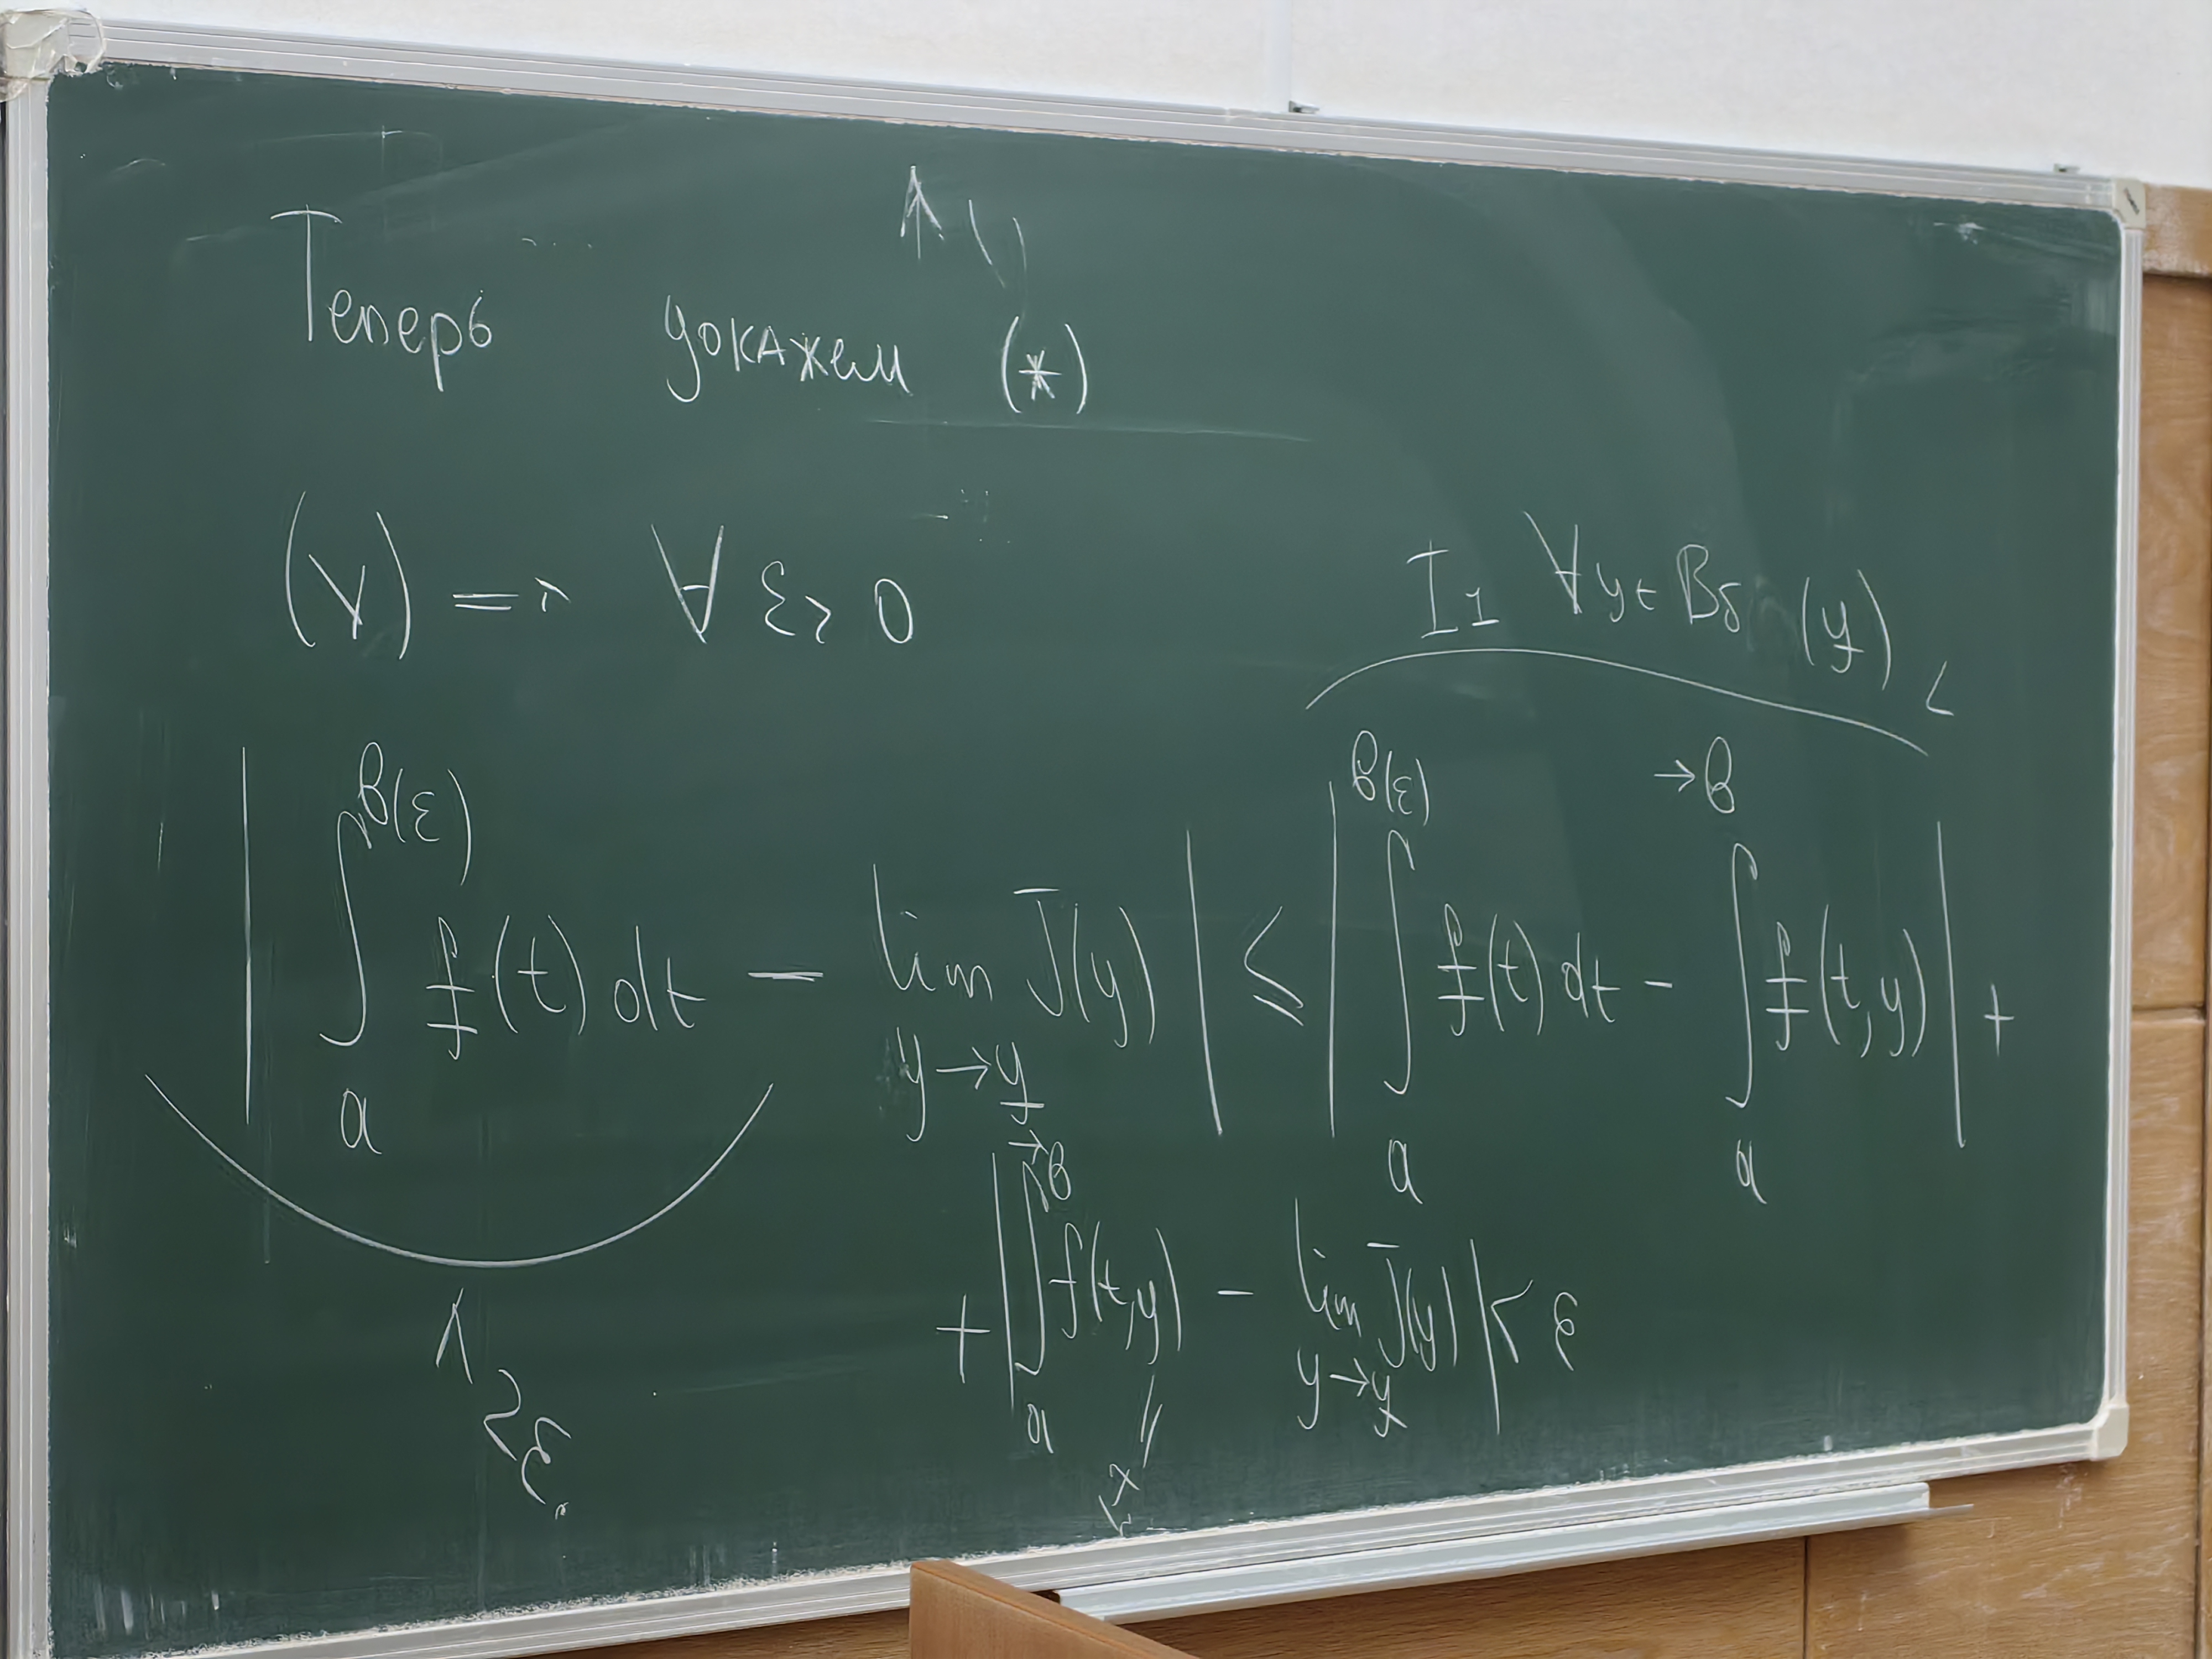 Теперь докажем (*)
(γ) => ∀ ε > 0
I₁ ∀y ∈ B_δ (y̲) <
| ∫_a^{B(ε)} f̲(t) dt − lim_{y→y̲} J(y) | ≤ | ∫_a^{B(ε)} f̲(t) dt − ∫_a^{→B} f̲(t,y) | +
< 2ε
+ | ∫_a^{→B} f(t,y) − lim_{y→y̲} J(y) | < ε